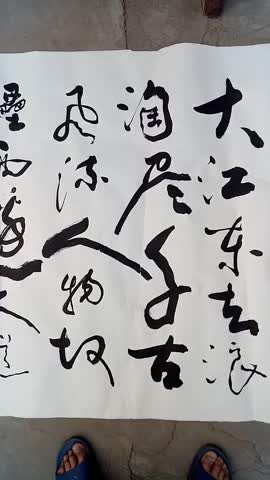 大江东去浪
淘尽千古
风流人物故
壘西邊人道